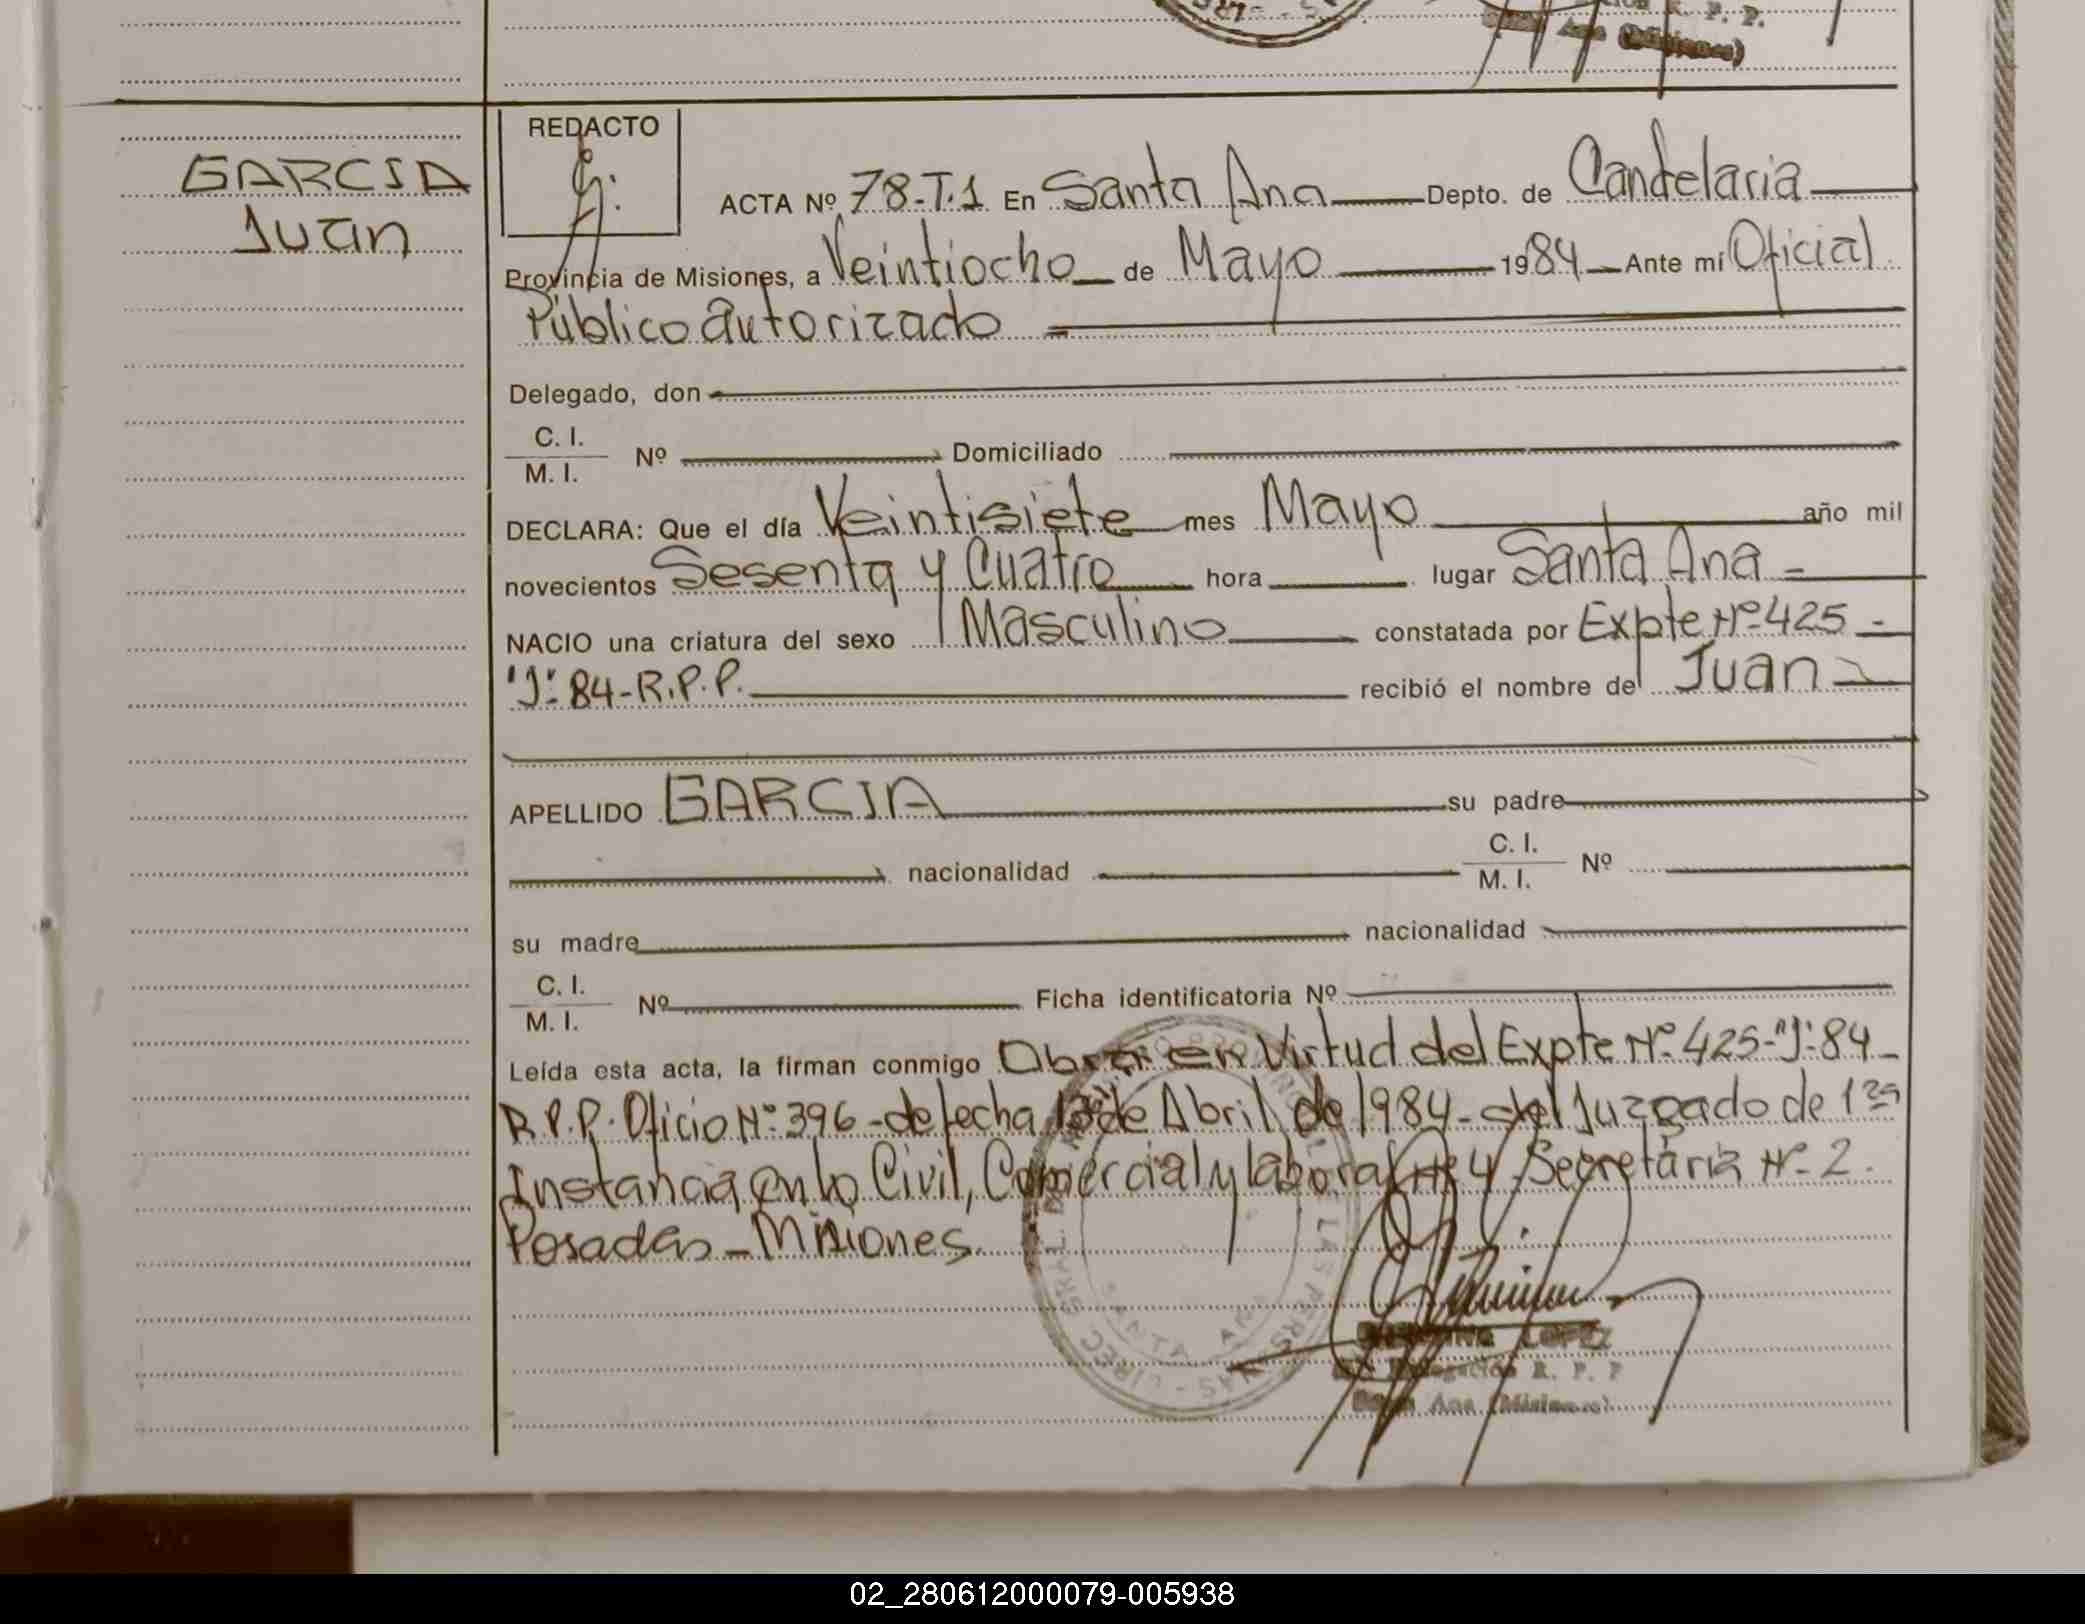 R. P. P.
Ana (Misiones)
REDACTO
GARCIA
Juan
ACTA Nº 78-T.1 En Santa Ana Depto. de Candelaria
Provincia de Misiones, a Veintiocho de Mayo 1984 Ante mí Oficial
Público autorizado
Delegado, don
C. I.
M. I. Nº Domiciliado
DECLARA: Que el día Veintisiete mes Mayo año mil
novecientos Sesenta y Cuatro hora lugar Santa Ana
NACIO una criatura del sexo Masculino constatada por Expte Nº 425
"J" 84-R.P.P. recibió el nombre de Juan
APELLIDO GARCIA su padre
nacionalidad C. I.
M. I. Nº
su madre nacionalidad
C. I.
M. I. Nº Ficha identificatoria Nº
Leída esta acta, la firman conmigo Obrar en Virtud del Expte Nº 425-"J"-84-
R.P.P. Oficio Nº 396-de fecha 13 de Abril de 1984-del Juzgado de 1ra
Instancia en lo Civil, Comercial y laboral Nº 4 Secretaria Nº 2.
Posadas-Misiones.
SANTA ANA
LOPEZ
Delegación R. P. P
Ana (Misiones)
02_280612000079-005938